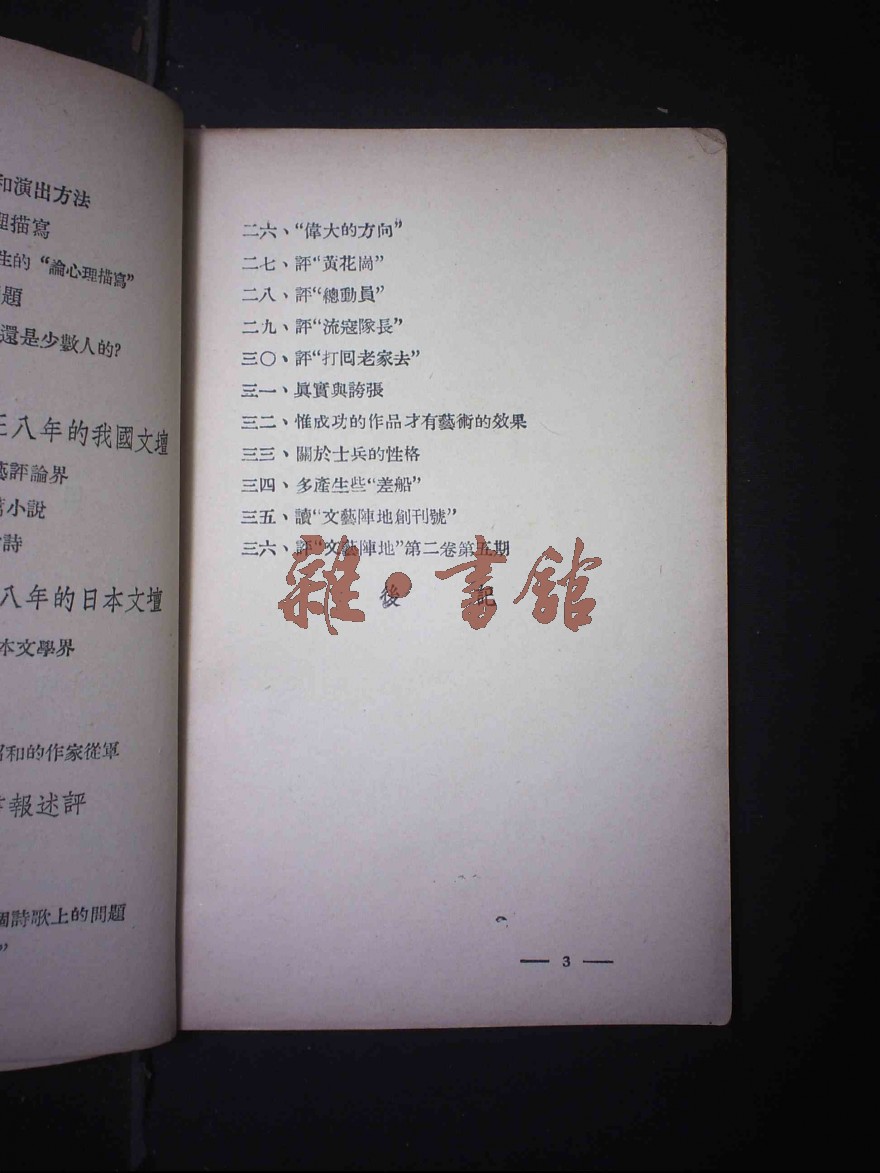 和演出方法
理描寫
生的“論心理描寫”
題
還是少數人的?
八年的我國文壇
藝評論界
小說
詩
八年的日本文壇
本文學界
昭和的作家從軍
報述評
個詩歌上的問題
”
二六、“偉大的方向”
二七、評“黃花崗”
二八、評“總動員”
二九、評“流寇隊長”
三〇、評“打回老家去”
三一、眞實與誇張
三二、惟成功的作品才有藝術的效果
三三、關於士兵的性格
三四、多產生些“差船”
三五、讀“文藝陣地創刊號”
三六、評“文藝陣地”第二卷第五期
後記
雜·書館
— 3 —